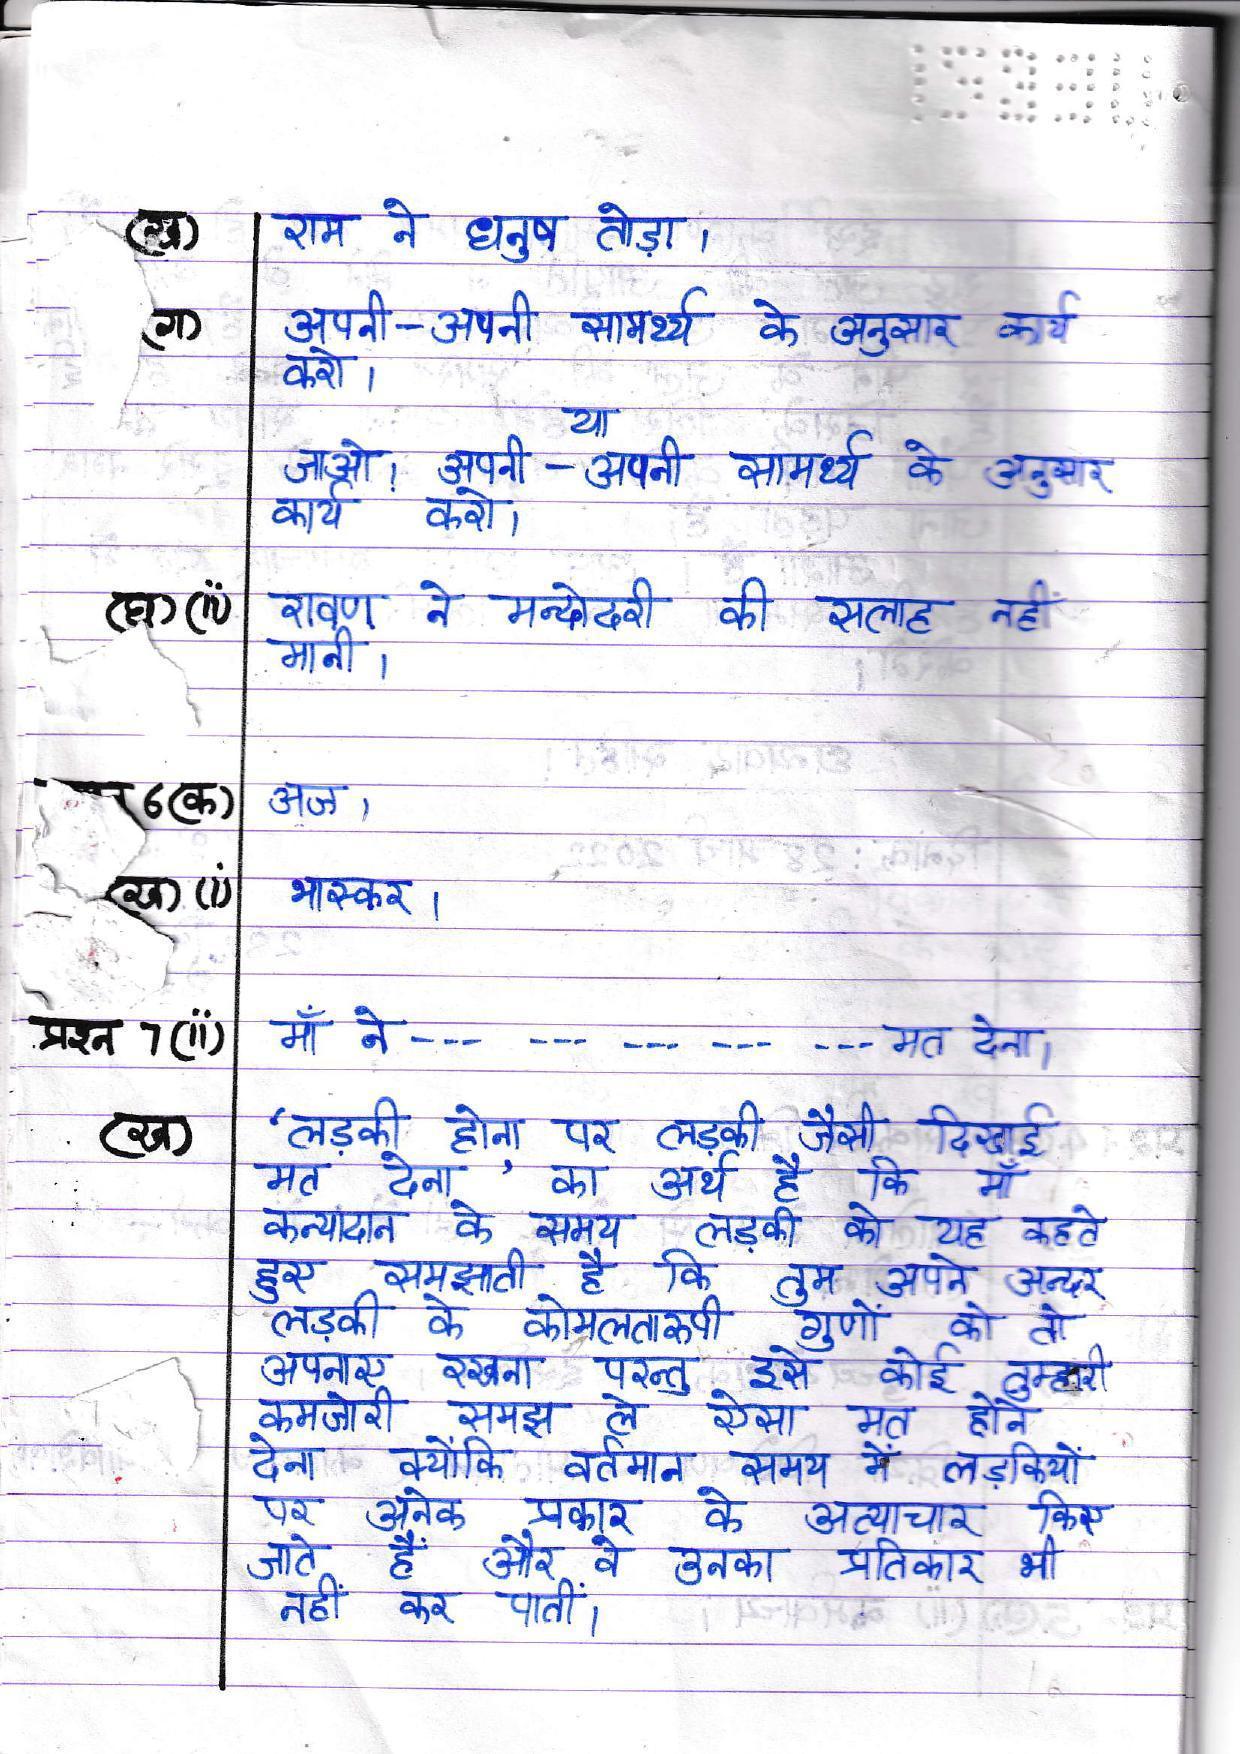 (ख) राम ने धनुष तोड़ा।
(ग) अपनी-अपनी सामर्थ्य के अनुसार कार्य
करो।
या
जाओ। अपनी-अपनी सामर्थ्य के अनुसार
कार्य करो।
(घ) (ii) रावण ने मन्दोदरी की सलाह नहीं
मानी।
6(क) अज।
(ख) (i) भास्कर।
प्रश्न 7(ii) माँ ने --- --- --- --- --- मत देना।
(ख) 'लड़की होना पर लड़की जैसी दिखाई
मत देना' का अर्थ है कि माँ
कन्यादान के समय लड़की को यह कहते
हुए समझाती है कि तुम अपने अन्दर
लड़की के कोमलतारूपी गुणों को तो
अपनाए रखना परन्तु इसे कोई तुम्हारी
कमजोरी समझ ले ऐसा मत होने
देना क्योंकि वर्तमान समय में लड़कियों
पर अनेक प्रकार के अत्याचार किए
जाते हैं और वे उनका प्रतिकार भी
नहीं कर पातीं।